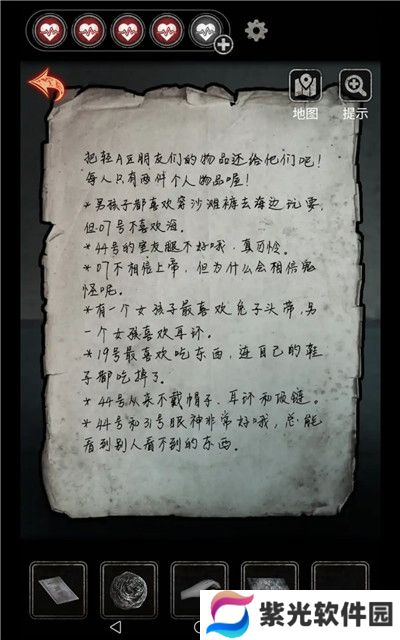 地图
提示
把轻A区朋友们的物品还给他们吧！
每人只有两件个人物品喔！
*男孩子都喜欢穿沙滩裤去海边玩耍，
但07号不喜欢海。
*44号的室友腿不好哦，真可怜。
*07不相信上帝，但为什么会相信鬼
怪呢。
*有一个女孩子最喜欢兔子头带，另
一个女孩喜欢耳环。
*19号最喜欢吃东西，连自己的鞋
子都吃掉了。
*44号从来不戴帽子、耳环和项链。
*44号和31号眼神非常好哦，总能
看到别人看不到的东西。
紫光软件园